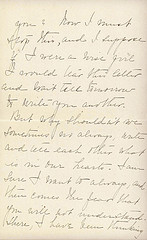 you: Now I must
stop this, and I suppose
if I were a wise girl
I would tear this letter
and wait till tomorrow
to write you another.
But why shouldn't we
sometimes, as always, write
and tell each other what
is in our hearts. I am
sure I want to always, and
then comes the fear that
you will not understand.
Where I have been thinking